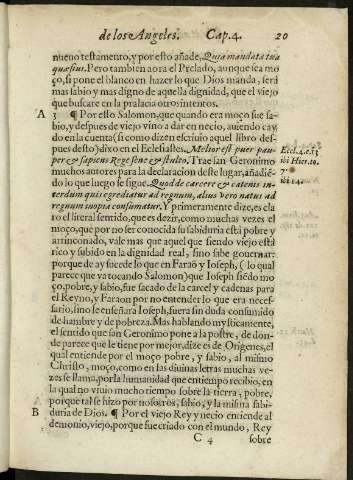 de los Angeles. Cap. 4. 20
nueuo testamento, y por esto añade, Quia mandata tua
quæsiui. Pero tambien aora el Prelado, aunque sea mo
ço, si pone el blanco en hazer lo que Dios manda, será
mas sabio y mas digno de aquella dignidad, que el viejo
que buscare en la pralacia otros intentos.
A 3 ¶ Por esso Salomon, que quando era moço fue sa-
bio, y despues de viejo vino a dar en necio, auiendo cay-
do en la cuenta (si como dizen escriuio aquel libro des-
pues desto) dixo en el Eclesiastes. Melior est puer pau-
per & sapiens Rege sene & stulto. Trae san Geronimo
muchos autores para la declaracion deste lugar, añadiē-
do lo que luego se sigue. Quod de carcere & catenis in-
terdum quis egrediatur ad regnum, alius vero natus ad
regnum inopia consumatur. Y primeramente dize, es cla-
ro el literal sentido, que es dezir, como muchas vezes el
moço, que por no ser conocida su sabiduria está pobre y
arrinconado, vale mas que aquel que siendo viejo está
rico y subido en la dignidad real, sino sabe gouernar:
porque de ay sucede lo que en Faraõ y Ioseph, (lo qual
parece que va tocando Salomon) que Ioseph siēdo mo
ço, pobre, y sabio, fue sacado de la carcel y cadenas para
el Reyno, y Faraon por no entender lo que era neces-
sario, sino le enseñara Ioseph, fuera sin duda consumido
de hambre y de pobreza. Mas hablando mysticamente,
el sentido que san Geronimo pone a la postre, de don-
de parece que le tiene por mejor, dize es de Origenes, el
qual entiende por el moço pobre, y sabio, al mismo
Christo, moço, como en las diuinas letras muchas ve-
zes se llama, por la humanidad que en tiempo recibio, en
la qual no viuio mucho tiempo sobre la tierra, pobre,
porque tal se hizo por nosotros, sabio, y la misma sabi-
B duria de Dios. ¶ Por el viejo Rey y necio entiende al
demonio, viejo, porque fue criado con el mundo, Rey
C 4 sobre
Eccl. 4. e. 13
ibi Hier. to.
7.
ibi 14.